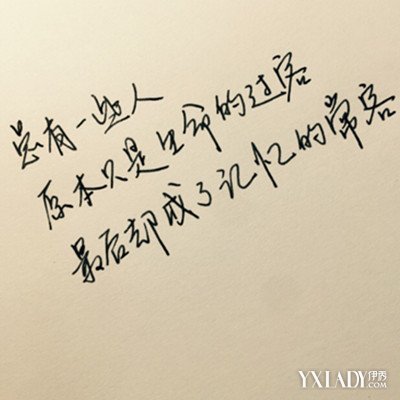 总有一些人
原本只是生命的过客
最后却成了记忆的常客
YXLADY.com伊秀